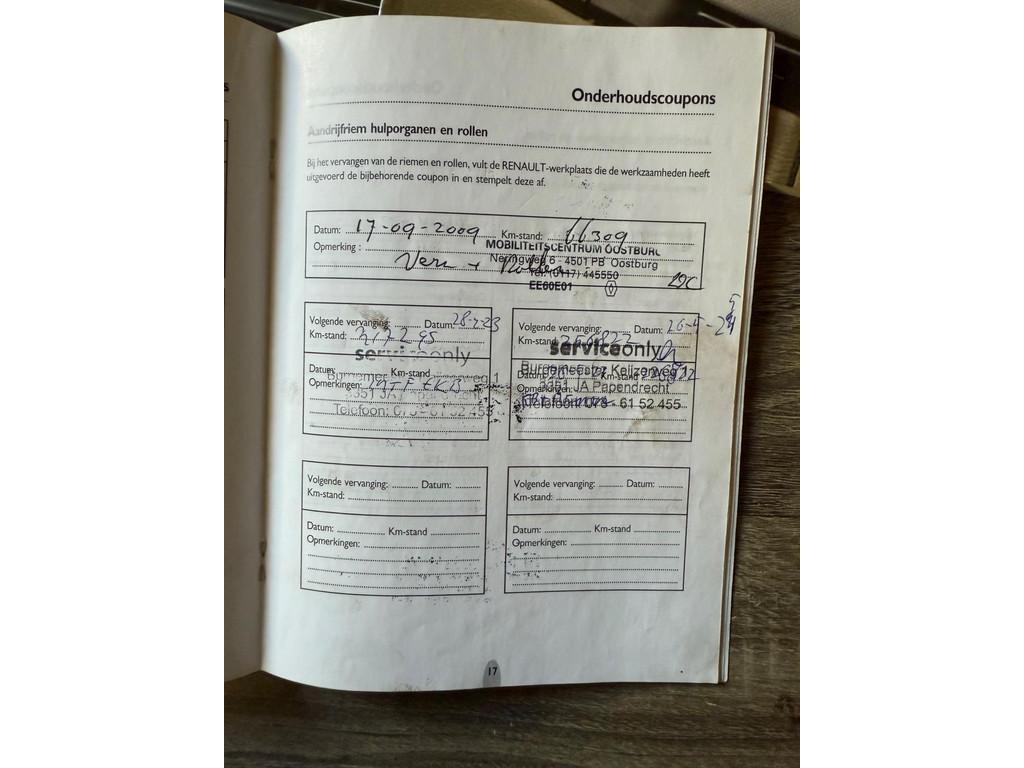 Onderhoudscoupons
Aandrijfriem hulporganen en rollen
Bij het vervangen van de riemen en rollen, vult de RENAULT-werkplaats die de werkzaamheden heeft
uitgevoerd de bijbehorende coupon in en stempelt deze af.
Datum: 17-09-2009 Km-stand: 66309
MOBILITEITSCENTRUM OOSTBURG
Opmerking :
Neringweg 6 - 4501 PB Oostburg
Tel. (0117) 445550
EE60E01
Volgende vervanging: Datum: 28-2-23
Km-stand: 317295
serviceonly
Datum: Km-stand
Opmerkingen:
3351 JA
Telefoon: 078 - 61 52 455
Volgende vervanging: Datum: 26-4-24
Km-stand:
serviceonly
Burgemeester Keijzerweg 1
Datum: Km-stand
3351 JA Papendrecht
Opmerkingen:
Telefoon: 078 - 61 52 455
Volgende vervanging: Datum:
Km-stand:
Datum: Km-stand
Opmerkingen:
Volgende vervanging: Datum:
Km-stand:
Datum: Km-stand
Opmerkingen:
17